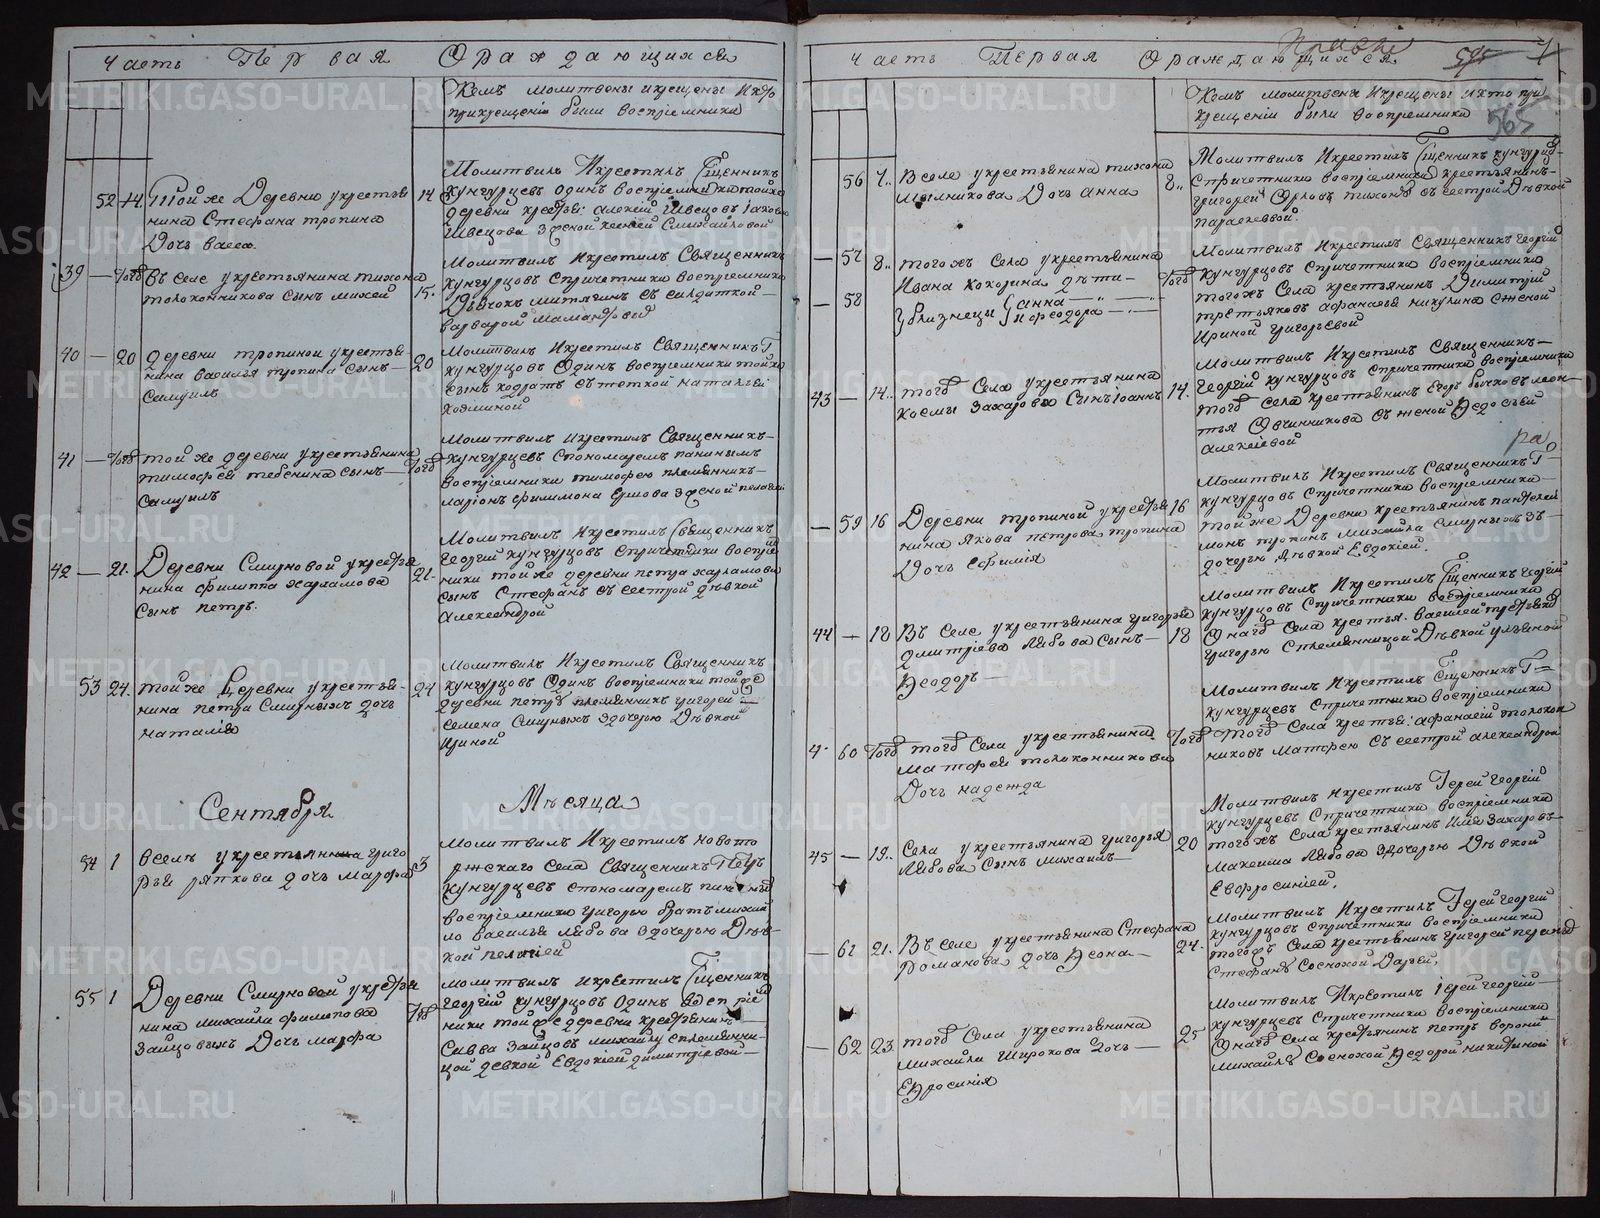 Часть Первая
Ораждающихся
Кемъ молитвены икрещены Икто
прикрещенiи были воспрiемники
52 14. Той же Деревни укрестья
нина Стефана тропина
Дочь васса
14
Молитвилъ Икрестилъ Сщенникъ
кунгурцевъ одинъ воспрiемники тойже
деревни крестья: алексiй Швецовъ Iакова
Швецова зженой ксенiей Смихайловой
39 — Тогож въ селе укрестьянина тихона
толоконникова сынъ михей
15.
Молитвилъ Икрестилъ Священникъ
кунгурцовъ спричетники воспрiемники
Дьячокъ митягинъ съ салдаткой
варварой мамантовой
40 — 20 деревни тропиной укрестья
нина василья тропина сынъ —
Самуилъ
20
Молитвилъ Икрестилъ СвященникъГ
кунгурцовъ Одинъ воспрiемники тойже
сынъ кодратъ съ теткой натальей
41 — Тогож той же деревни укрестьянина
тимофея тебенина сынъ
Самуилъ
Тогож
Молитвилъ икрестилъ Священникъ —
кунгурцевъ Спономаремъ панинымъ
воспрiемники тимофею племянникъ —
ларiонъ филимона ершова зженой пелагеей
42 — 21. Деревни Смирновой укрестья
нина филиппа харламова
Сынъ петръ.
21.
Молитвилъ Икрестилъ Священникъ
Георгiй кунгурцовъ Спричетники воспрiе
мники той же деревни петра харламова
сынъ Стефанъ съ сестрой дѣвкой
Александрой
53 24. той же Деревни укрестья-
нина петра Смирныхъ дочь
наталiя
24
Молитвилъ Икрестилъ Священникъ
кунгурцовъ Одинъ воспрiемники тойже
деревни петру племянникъ григорей
семена Смирныхъ здочерью Дѣвкой
Ириной
Сентября
Мѣсяца
54 1 всемъ укрестьянина григо
рья ряпкова дочь Марфа
3
Молитвилъ Икрестилъ новото
ржскаго Села Священникъ Петръ
кунгурцевъ спономаремъ панинымъ
воспрiемники григорью братъ михай
ло василья лябова здочерью Дѣв-
кой пелагiей
55 1 Деревни Смирновой укрестья
нина михайла филипова
Зайцовыхъ Дочь марфа
Тогож
молитвилъ икрестилъ Сщенникъ
Георгiй кунгурцовъ Одинъ воспрiе
мники той же деревни крестьянинъ —
Савва зайцовъ михайлу сплемянни-
цой девкой Евдокiей димитрiевой —
Часть Первая Ораждающихся.
565
Кемъ молитвены Икрещены икто при
крещенiи были воспрiемники
56 7.. Вселе укрестьянина тихона
мыльникова Дочь анна
8..
Молитвилъ Икрестилъ Сщенникъ кунгурцо-
Спричетники воспрiемники крестьянинъ-
григорей Орловъ тихону съ сестрой Дѣвкой
параскеввой.
— 57 8.. тогожъ Села укрестьянина
Ивана кокорина дѣти —
— 58 Ублизнецы анна — " —
и феодора — " —
Тогож
Молитвилъ Икрестилъ Священникъ георгiй
кунгурцовъ Спричетники воспрiемники
тогожъ Села крестьянинъ Димитрiй
третьяковъ афанасья никулина сженой
Ириной григорьевой
43 — 14.. тогож Села укрестьянина
космы захарова Сынъ Iоаннъ
14.
Молитвилъ Икрестилъ Священникъ —
Георгiй кунгурцовъ спричетники воспрiемники
тогож села крестьянинъ Егоръ бычковъ леон-
тья Овчинникова съ женой Федосьей
алексiевой
— 59 16 Деревни тропиной укрестья
нина якова петрова тропина
Дочь ефимiя
16
Молитвилъ Икрестилъ СвященникъГ
кунгурцовъ Спричетники воспрiемники —
той же Деревни крестьянинъ пантелей
монъ тропинъ михайла смирныхъ зъ —
дочерью дѣвкой Евдокiей.
44 — 18 Въ селе укрестьянина григорья
димитрiева лябова сынъ —
Феодоръ —
18
Молитвилъ Икрестилъ Сщенникъ георгiй
кунгурцовъ Спричетники воспрiемники
Онагож Села крестья. василей третьяковъ
григорью Сплемянницой Дѣвкой ульяной
60 Тогож тогож Села укрестьянина
матфея толоконникова
Дочь надежда
Тогож
Молитвилъ Икрестилъ Сщенникъ Г=
кунгурцевъ Спричетники воспрiемники
тогож Села крестья: афанасiй толокон
никовъ матфею съ сестрой александрой
45 — 19.. Села укрестьянина григорья
Лябова Сынъ михаилъ —
20
Молитвилъ Икрестилъ Iерей георгiй
кунгурцевъ Спричетники воспрiемники
тогожъ Села крестьянинъ илiя захаровъ
максима Лябова здочерью Дѣвкой
Евфросинiей.
— 61 21. Въ селе укрестьянина Стефана
романова дочь Феона —
24.
Молитвилъ Икрестилъ Iерей георгiй
кунгурцовъ спричетники воспрiемники
тогож Села крестьянинъ григорей
Стефанъ Соснохой Дарьей.
— 62 23. тогож Села укрестьянина
михайла Широкова Дочь —
Ефросинiя
25
Молитвилъ Икрестилъ Iерей георгiй —
кунгурцевъ Спричетники воспрiемники
Онагож Села крестьянинъ петръ воронин
михайлъ Соснохой Федорой никитиной